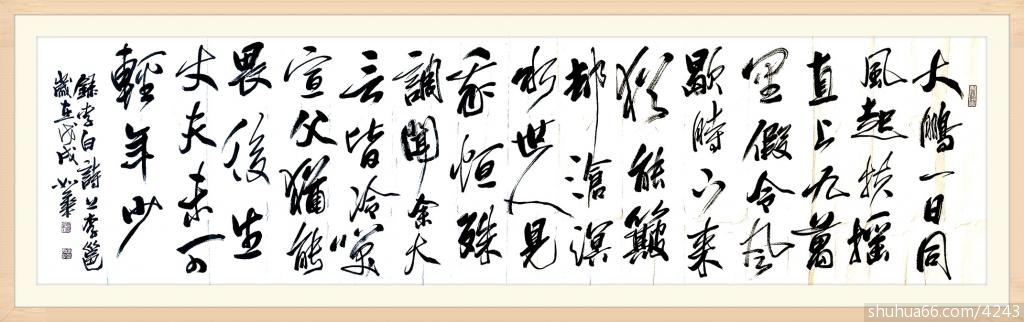 大鵬一日同
風起扶摇
直上九萬
里假令风
歇時下来
犹能簸
却滄溟
时世人見
我恒殊
調聞余大
言皆冷笑
宣父猶能
畏後生
丈夫未可
輕年少
錄李白詩上李邕
歲在戊戌
shuhua66.com/4243